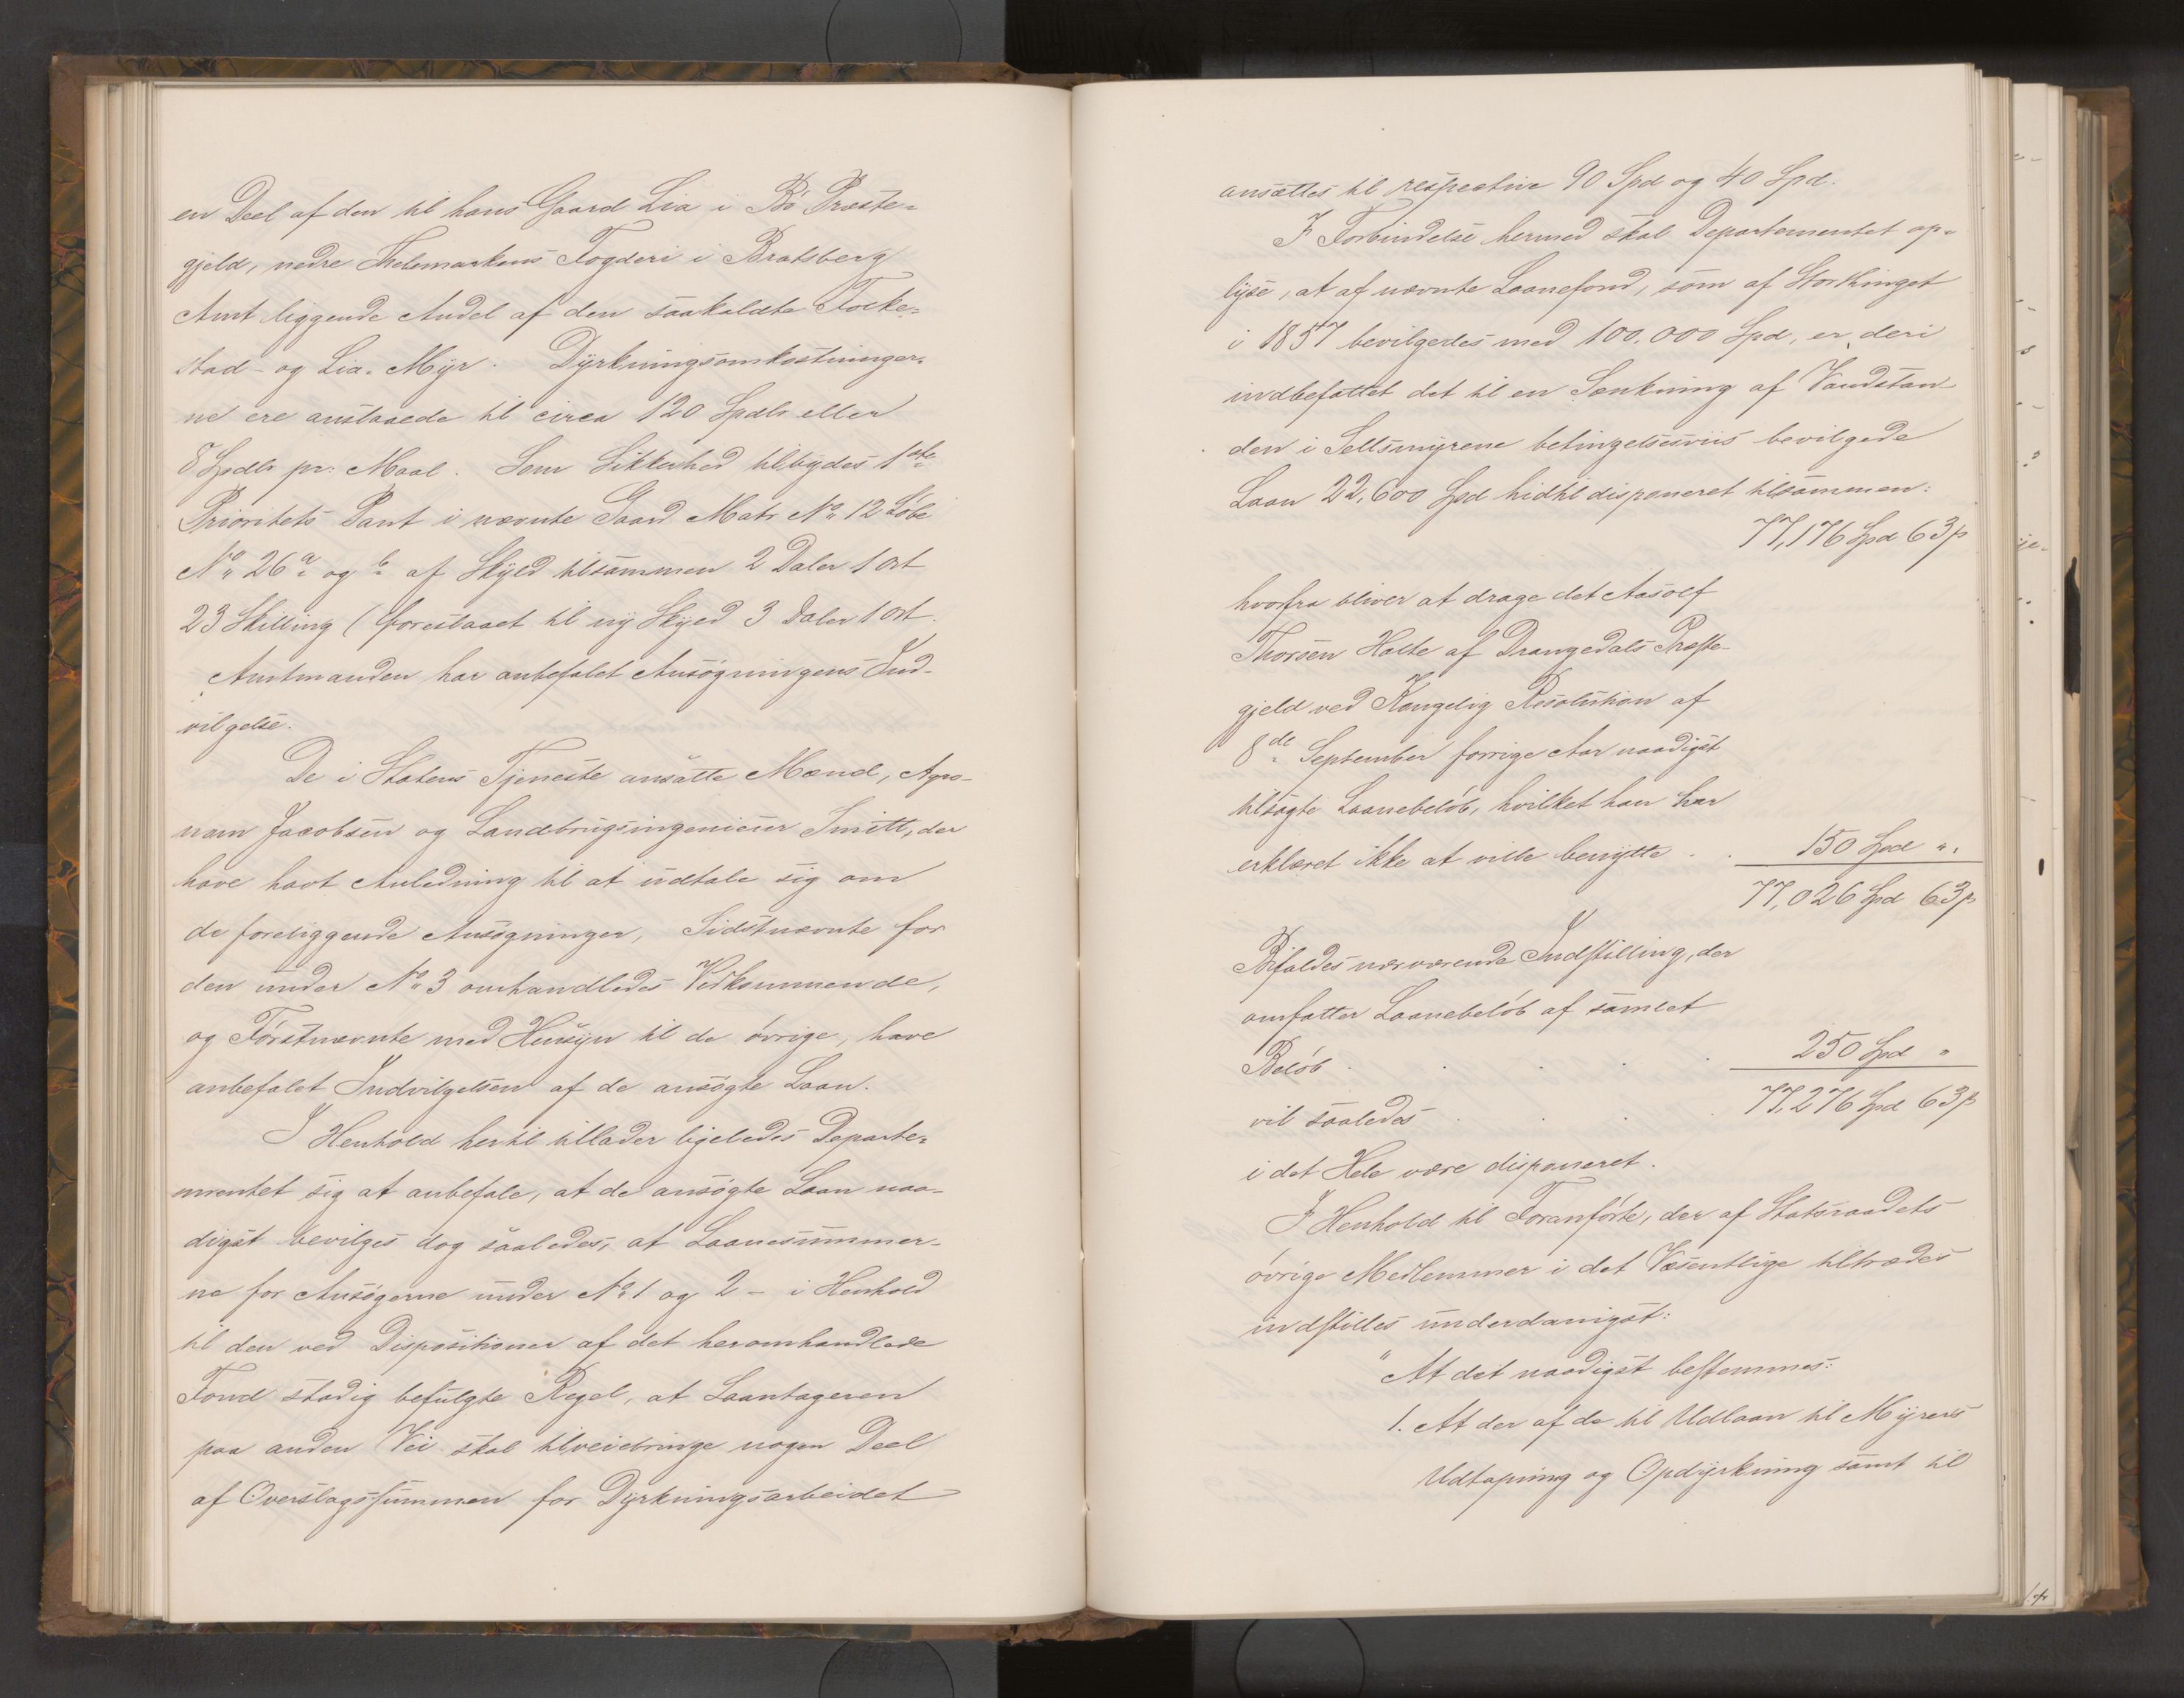 en Deel af den til hans Gaard Lia i Bö Præste-
gjeld, nedre Thelemarkens Fogderi i Bratsberg
Amt liggende Andel af den saakaldte Folke-
stad- og Lia-Myr. Dyrkningsomkostninger-
ne ere anslaaede til circa 120 Spdlr eller
8 Spdlr pr: Maal. Som Sikkerhed tilbydes 1ste
Prioritets Pant i nævnte Gaard Matr No 12 Løbe
No 26a og b af Skyld tilsammen 2 Daler 1 Ort
23 Skilling (foreslaaet til ny Skyld 3 Daler 1 Ort.
Amtmanden har anbefalet Ansøgningens Ind-
vilgelse.
De i Statens Tjeneste ansatte Mænd, Agro-
nom Jacobsen og Landbrugsingenieur Smitt, der
have havt Anledning til at udtale sig om
de foreliggende Ansøgninger, Sidstnævnte for
den under No 3 omhandledes Vedkommende,
og Førstnævnte med Hensyn til de øvrige, have
anbefalet Indvilgelsen af de ansøgte Laan.
I Henhold hertil tillader ligeledes Departe-
mentet sig at anbefale, at de ansøgte Laan naa-
digst bevilges dog saaledes, at Laanesummer-
ne for Ansøgerne under No 1 og 2 - i Henhold
til den ved Dispositioner af det heromhandlede
Fond stadig befulgte Regel, at Laantageren
paa anden Vei skal tilveiebringe nogen Deel
af Overslagssummen for Dyrkningsarbeidet
ansættes til respective 90 Spd og 40 Spd.
I Forbindelse hermed skal Departementet op-
lyse, at af nævnte Laanefond, som af Storthinget
i 1857 bevilgedes med 100.000 Spd, er, deri
indbefattet det til en Sænkning af Vandstan
den i Seltsmyrene betingelsesviis bevilgede
Laan 22,600 Spd hidtil disponeret tilsammen:
77,176 Spd 63 ß
hvorfra bliver at drage det Aasolf
Thorsen Holte af Drangedals Præste-
gjeld ved Kongelig Resolution af
8de September forrige Aar naadigst
tilsagte Laanebeløb, hvilket han har
erklæret ikke at ville benytte . . 150 Spd ".
77,026 Spd 63 ß
Bifaldes nærværende Indstilling, der
omfatter Laanebeløb af samlet
Beløb . . . . 250 Spd "
vil saaledes . . . 77,276 Spd 63 ß
i det Hele være disponeret.
I Henhold til Foranførte, der af Statsraadets
øvrige Medlemmer i det Væsentlige tiltrædes
indstilles underdanigst:
"At det naadigst bestemmes:
1. At der af de til Udlaan til Myrers
Udtapning og Opdyrkning samt til